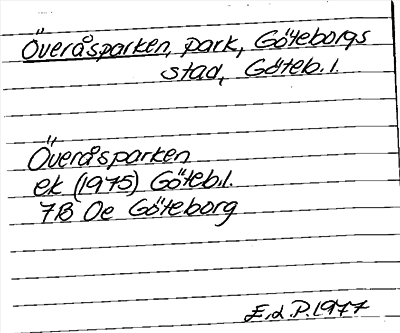 Överåsparken, park, Göteborgs
stad, Göteb. l.
Överåsparken
ek (1975) Göteb.l.
7B 0e Göteborg
E.d.P.1977